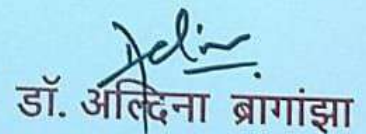 डॉ. अल्दिना ब्रागांझा